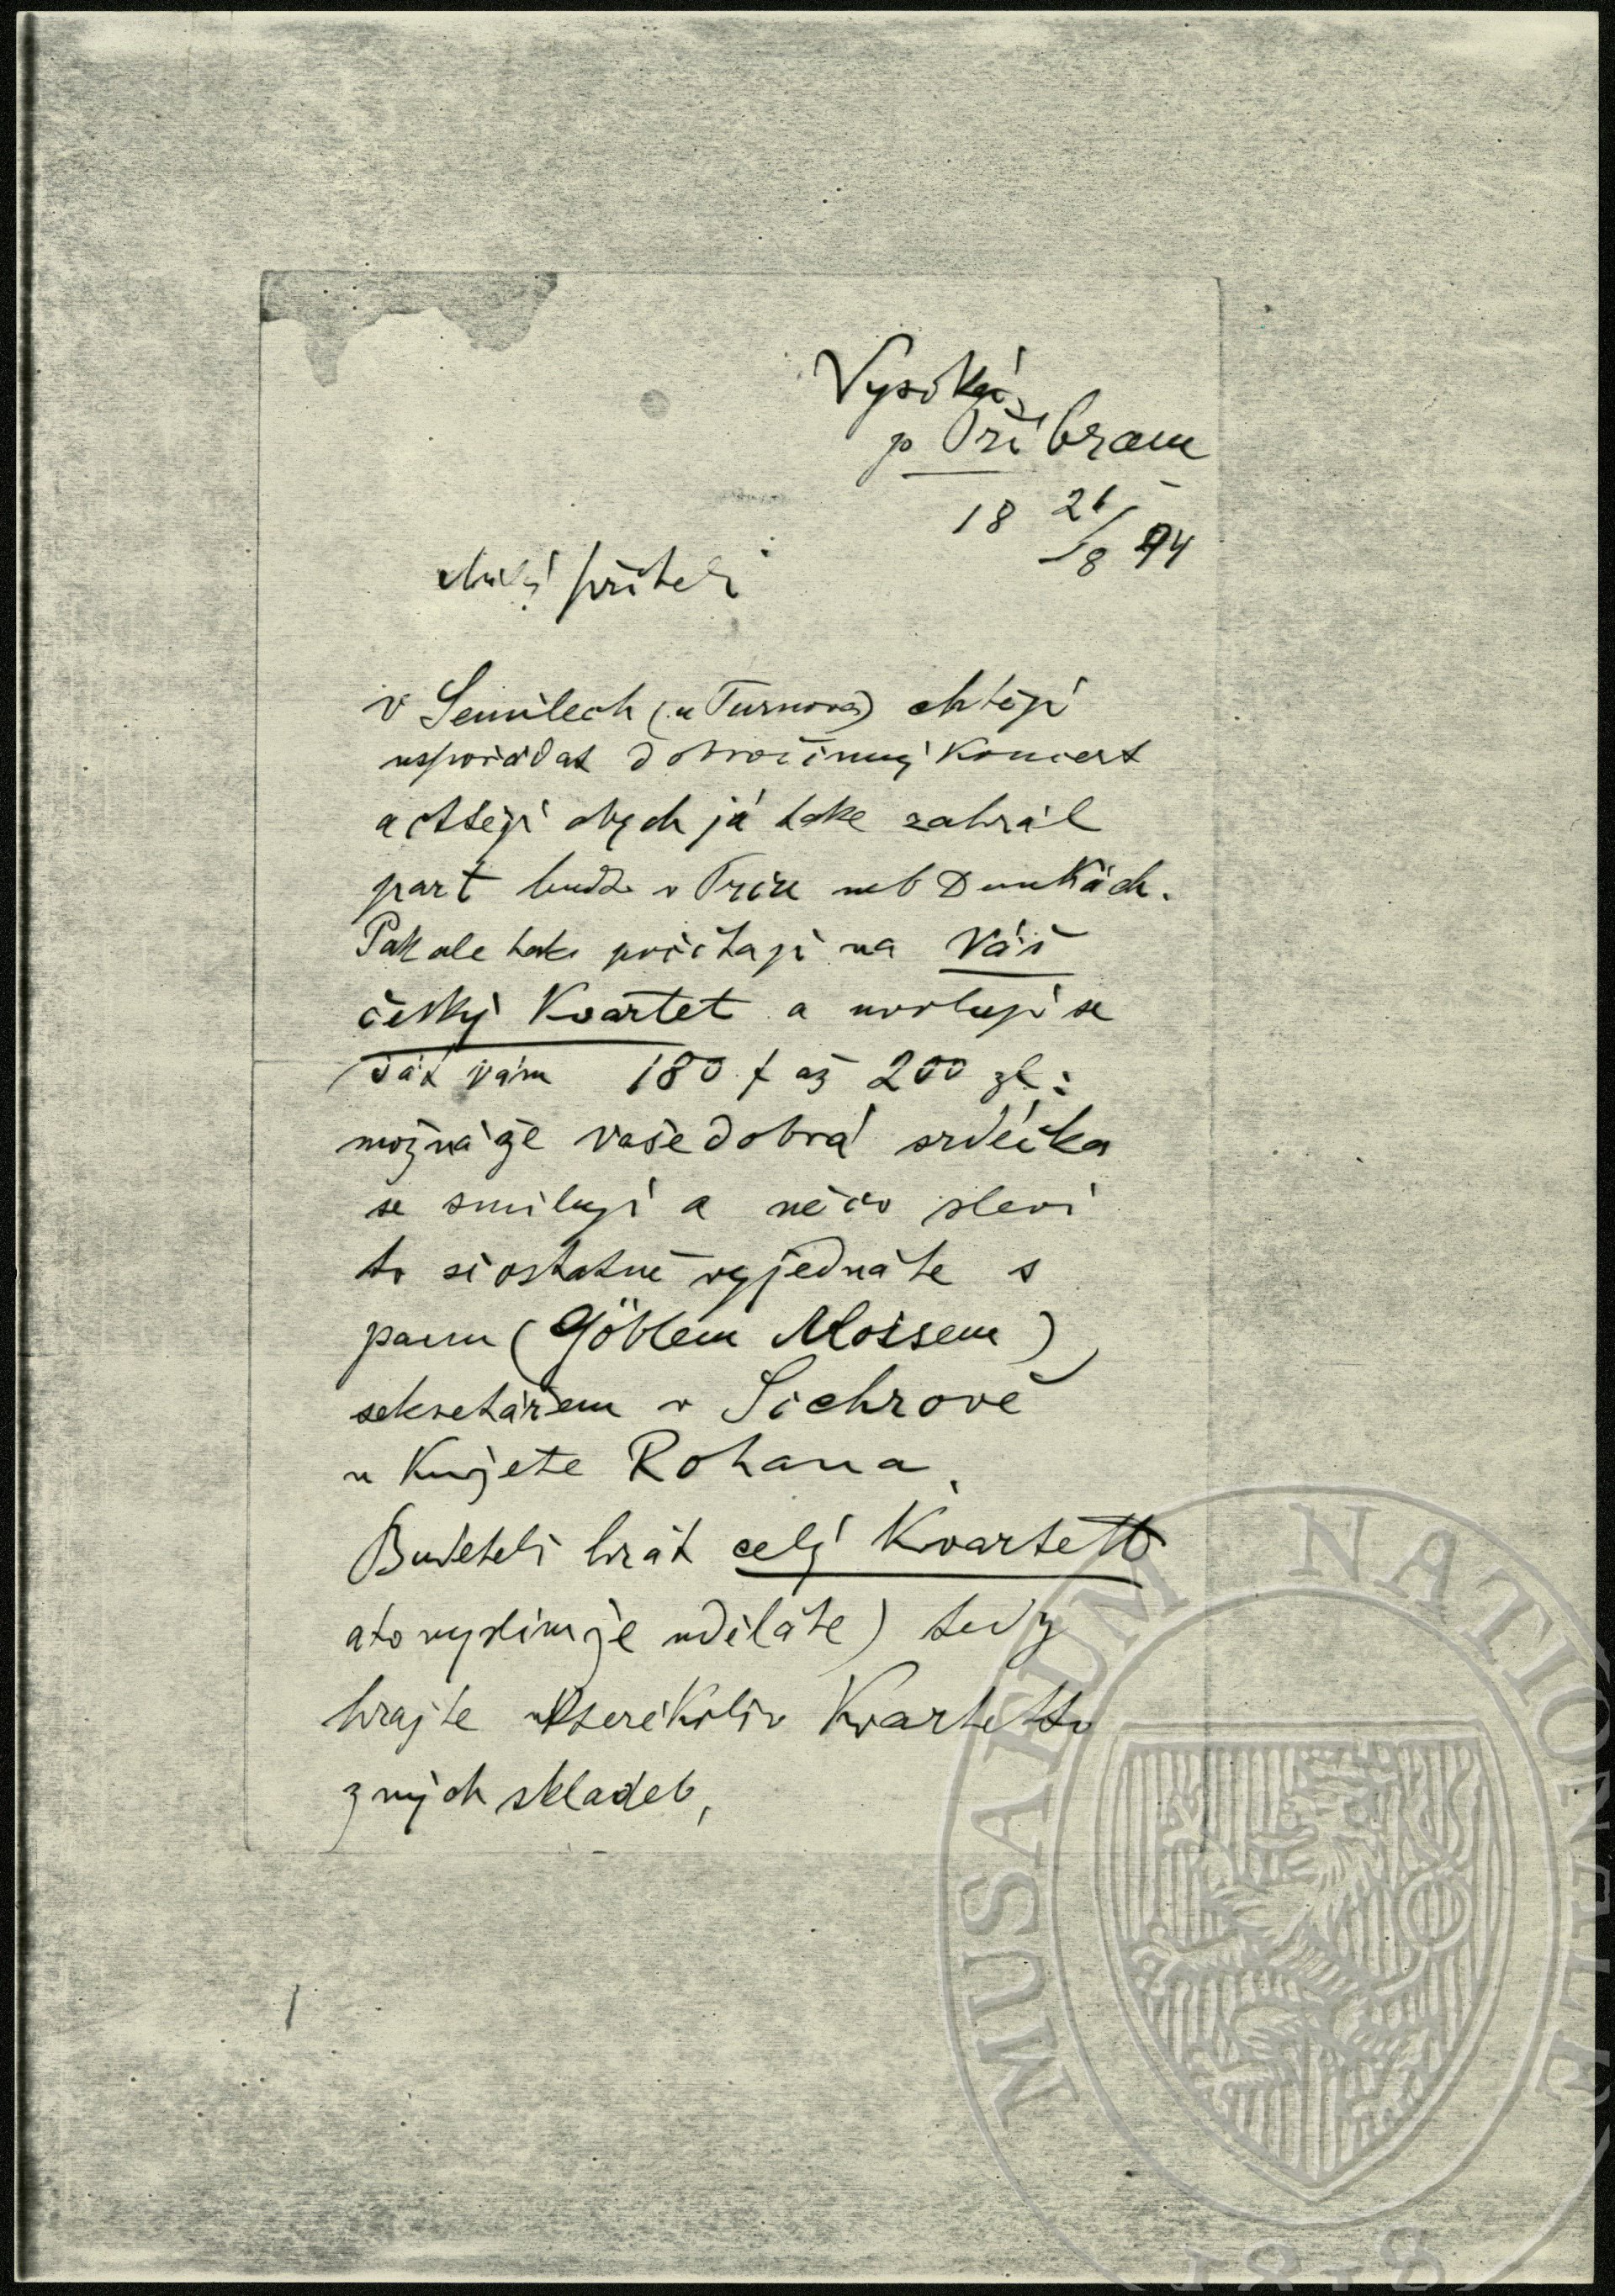 Vysoká,
p Příbram
18 26/8 94
Milý příteli
V Semilech (u Turnova) chtějí
uspořádat dobročinný koncert
a chtějí abych já take zahrál
part budto v Triu neb Dumkách.
Pak ale take počítají na Váš
český Kvartet a uvolují se
dát Vám 180 f až 200 zl:
možná že vaše dobrá srdéčka
se smilují a něco sleví
to si ostatně vyjednáte s
panem (Göblem Aloisem)
sekretářem v Sichrově
u Knížete Rohana.
Budeteli hrát celý Kvartetto
a to myslim že uděláte) tedy
hrajte kterékoliv Kvartetto
z mých skladeb,
MUSAEUM NATIONALE
1818